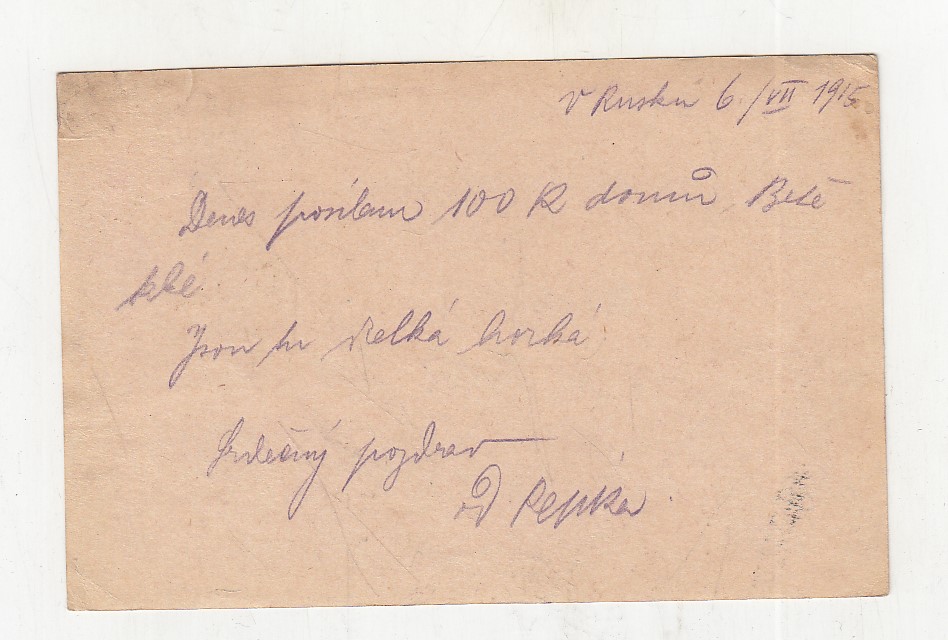 V Rusku 6./VII 1915
Dnes posílam 100 K domů
Jsou tu velká horká
Srdečný pozdrav
od Pepíka.